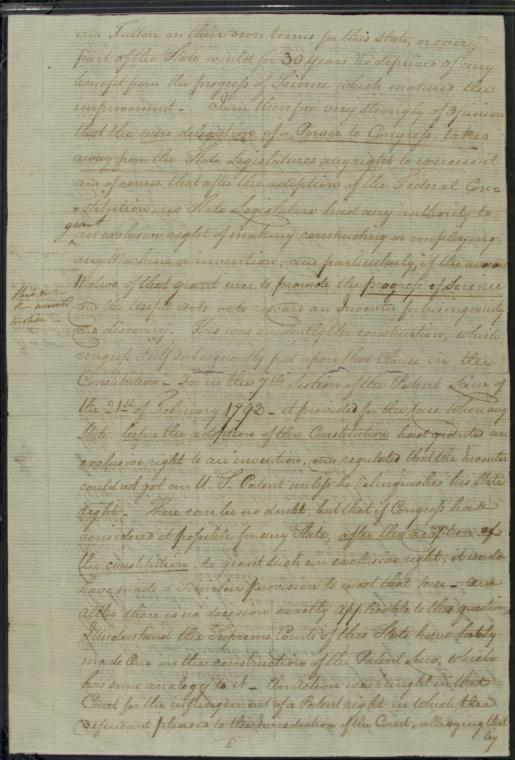 and Fulton on their own terms for this State, or every
part of the State would for 30 Years be deprived of any
benefit from the progress of Science which matured the
improvement - I am therefore very strongly of Opinion
that the mere delegation of a Power to Congress, takes
away from the State Legislatures any right to exercise it
and of course that after the adoption of the Federal Con=
=stitution, no State Legislature had any authority to
grant
an exclusive right of making constructing or employing
any Machine or invention, and particularly, if the avowed
Motive of that grant was to promote the progress of Science
this was
the avowed
motive -
and the Useful arts or to reward an Inventor for his ingenuity
and discovery. This was evidently the construction, which
congress itself subsequently put upon that Clause in the
Constitution - For in the 7th Section of the Patent Law of
the 21st of February 1793 - it provided for the case where any
State, before the adoption of the Constitution had granted an
exclusive right to an invention, and regulated that the Inventor
could not get an U. S. Patent unless he relinquished his State
right - There can be no doubt, but that if Congress had
considered it possible for any State, after the adoption of
the constitution, to grant such an exclusive right, it would
have made a Similar provision to meet that case - and
altho there is no decision exactly applicable to this question,
I understand the Supreme Court of this State have lately
made One on the construction of the Patent Law, which
has some analogy to it - An Action was brought in that
Court for the infringement of a Patent right in which the
defendant pleaded to the Jurisdiction of the Court, alledging that
by
5